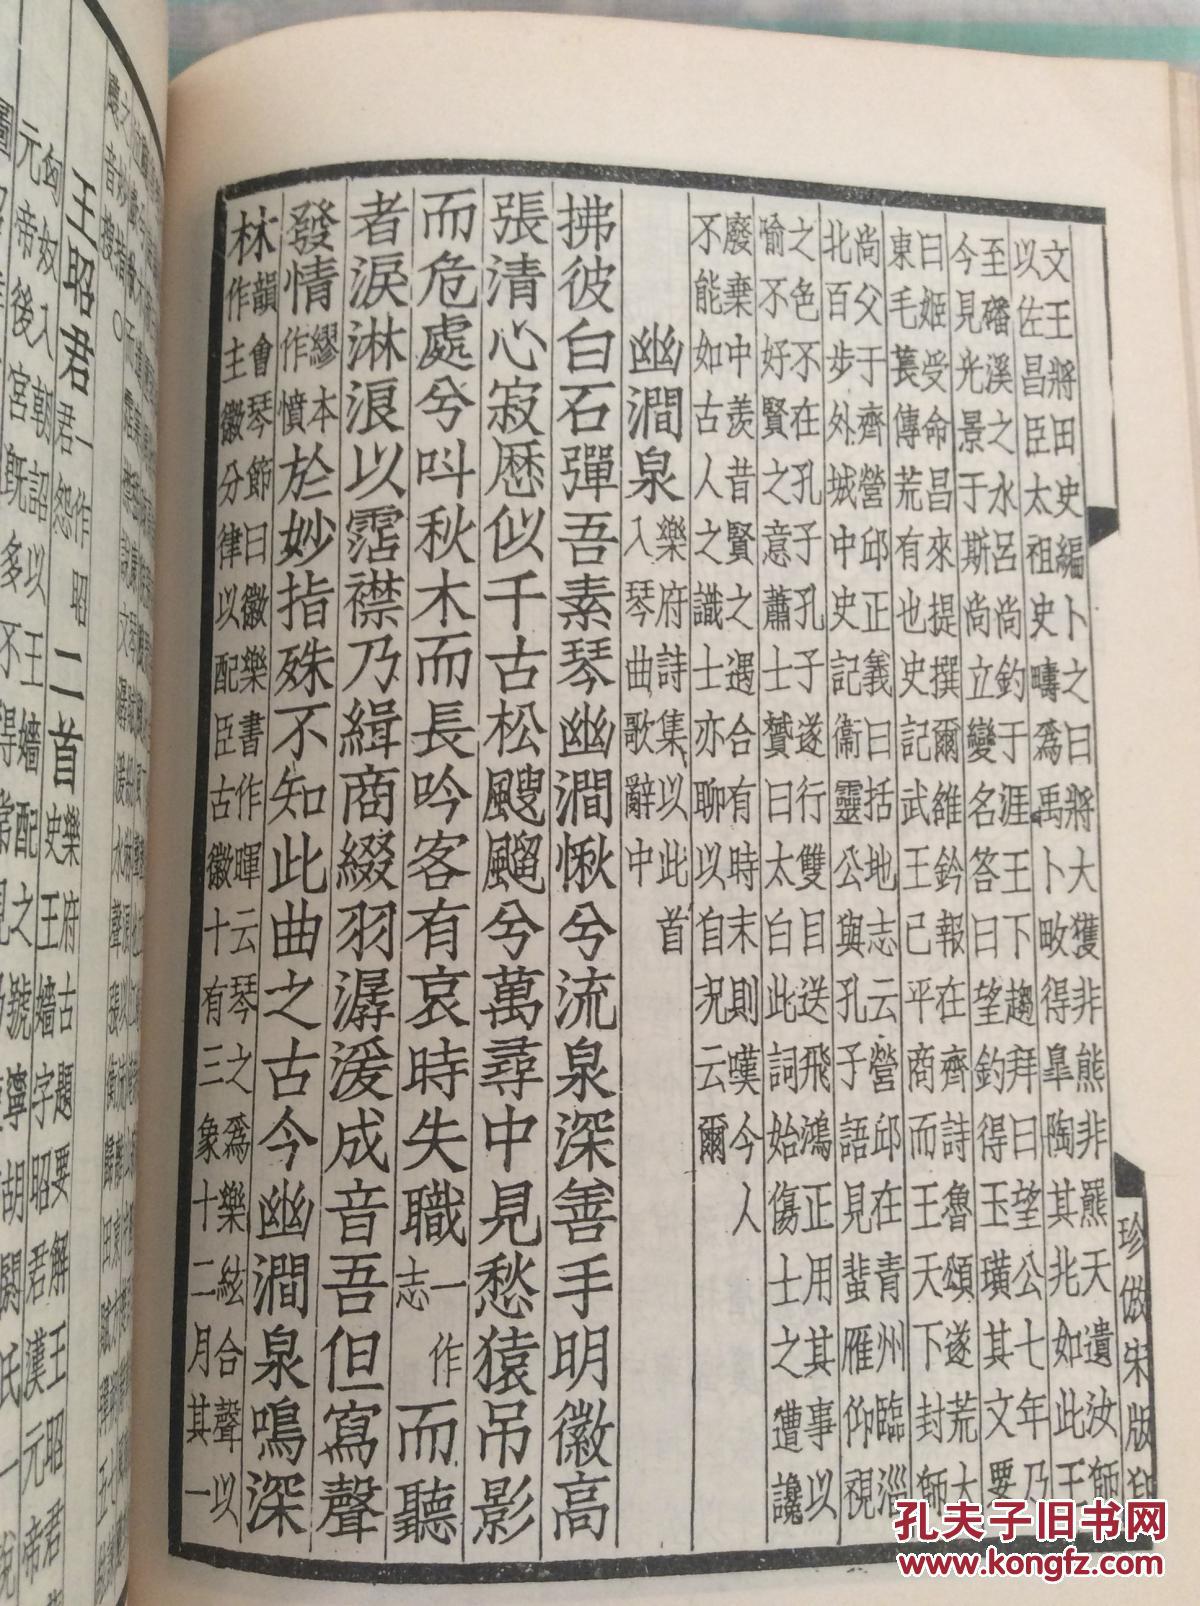 文王將田史編卜之曰將大獲非熊非羆天遺汝師
以佐昌臣太祖史疇爲禹卜畋得臯陶其兆如此王
至磻溪之水呂尚釣于涯王下趨拜曰望公七年乃
今見光景于斯尚立變名答曰望釣得玉璜其文要
曰姬受命昌來提撰爾雒鈐報在齊詩魯頌遂荒大
東毛萇傳荒有也史記武王已平商而王天下封師
尚父于齊營邱正義曰括地志云營邱在青州臨淄
北百步外城中史記衞靈公與孔子語見蜚雁仰視
之色不在孔子孔子遂行雙目送飛鴻正用其事以
喻不好賢之意蕭士贇曰太白此詞始傷士之遭讒
廢棄中羨昔賢之遇合有時末則嘆今人
不能如古人之識士亦聊以自況云爾
幽澗泉
樂府詩集以此首
入琴曲歌辭中
拂彼白石彈吾素琴幽澗愀兮流泉深善手明徽高
張清心寂歷似千古松颼飀兮萬尋中見愁猿吊影
而危處兮叫秋木而長吟客有哀時失職一作志而聽
者淚淋浪以霑襟乃緝商綴羽潺湲成音吾但寫聲
發情繆本作憤於妙指殊不知此曲之古今幽澗泉鳴深
林韻會琴節曰徽樂書作暉云琴之爲樂絃合聲以
作主徽分律以配臣古徽十有三象十二月其一
珍倣宋版印
王昭君一作昭君怨二首
樂府古題要解王昭君
史王嬙字昭君漢元帝
匈奴入朝詔以王嬙配之號寧胡閼氏一說
元帝後宮既多不得常見
孔夫子旧书网
www.kongfz.com